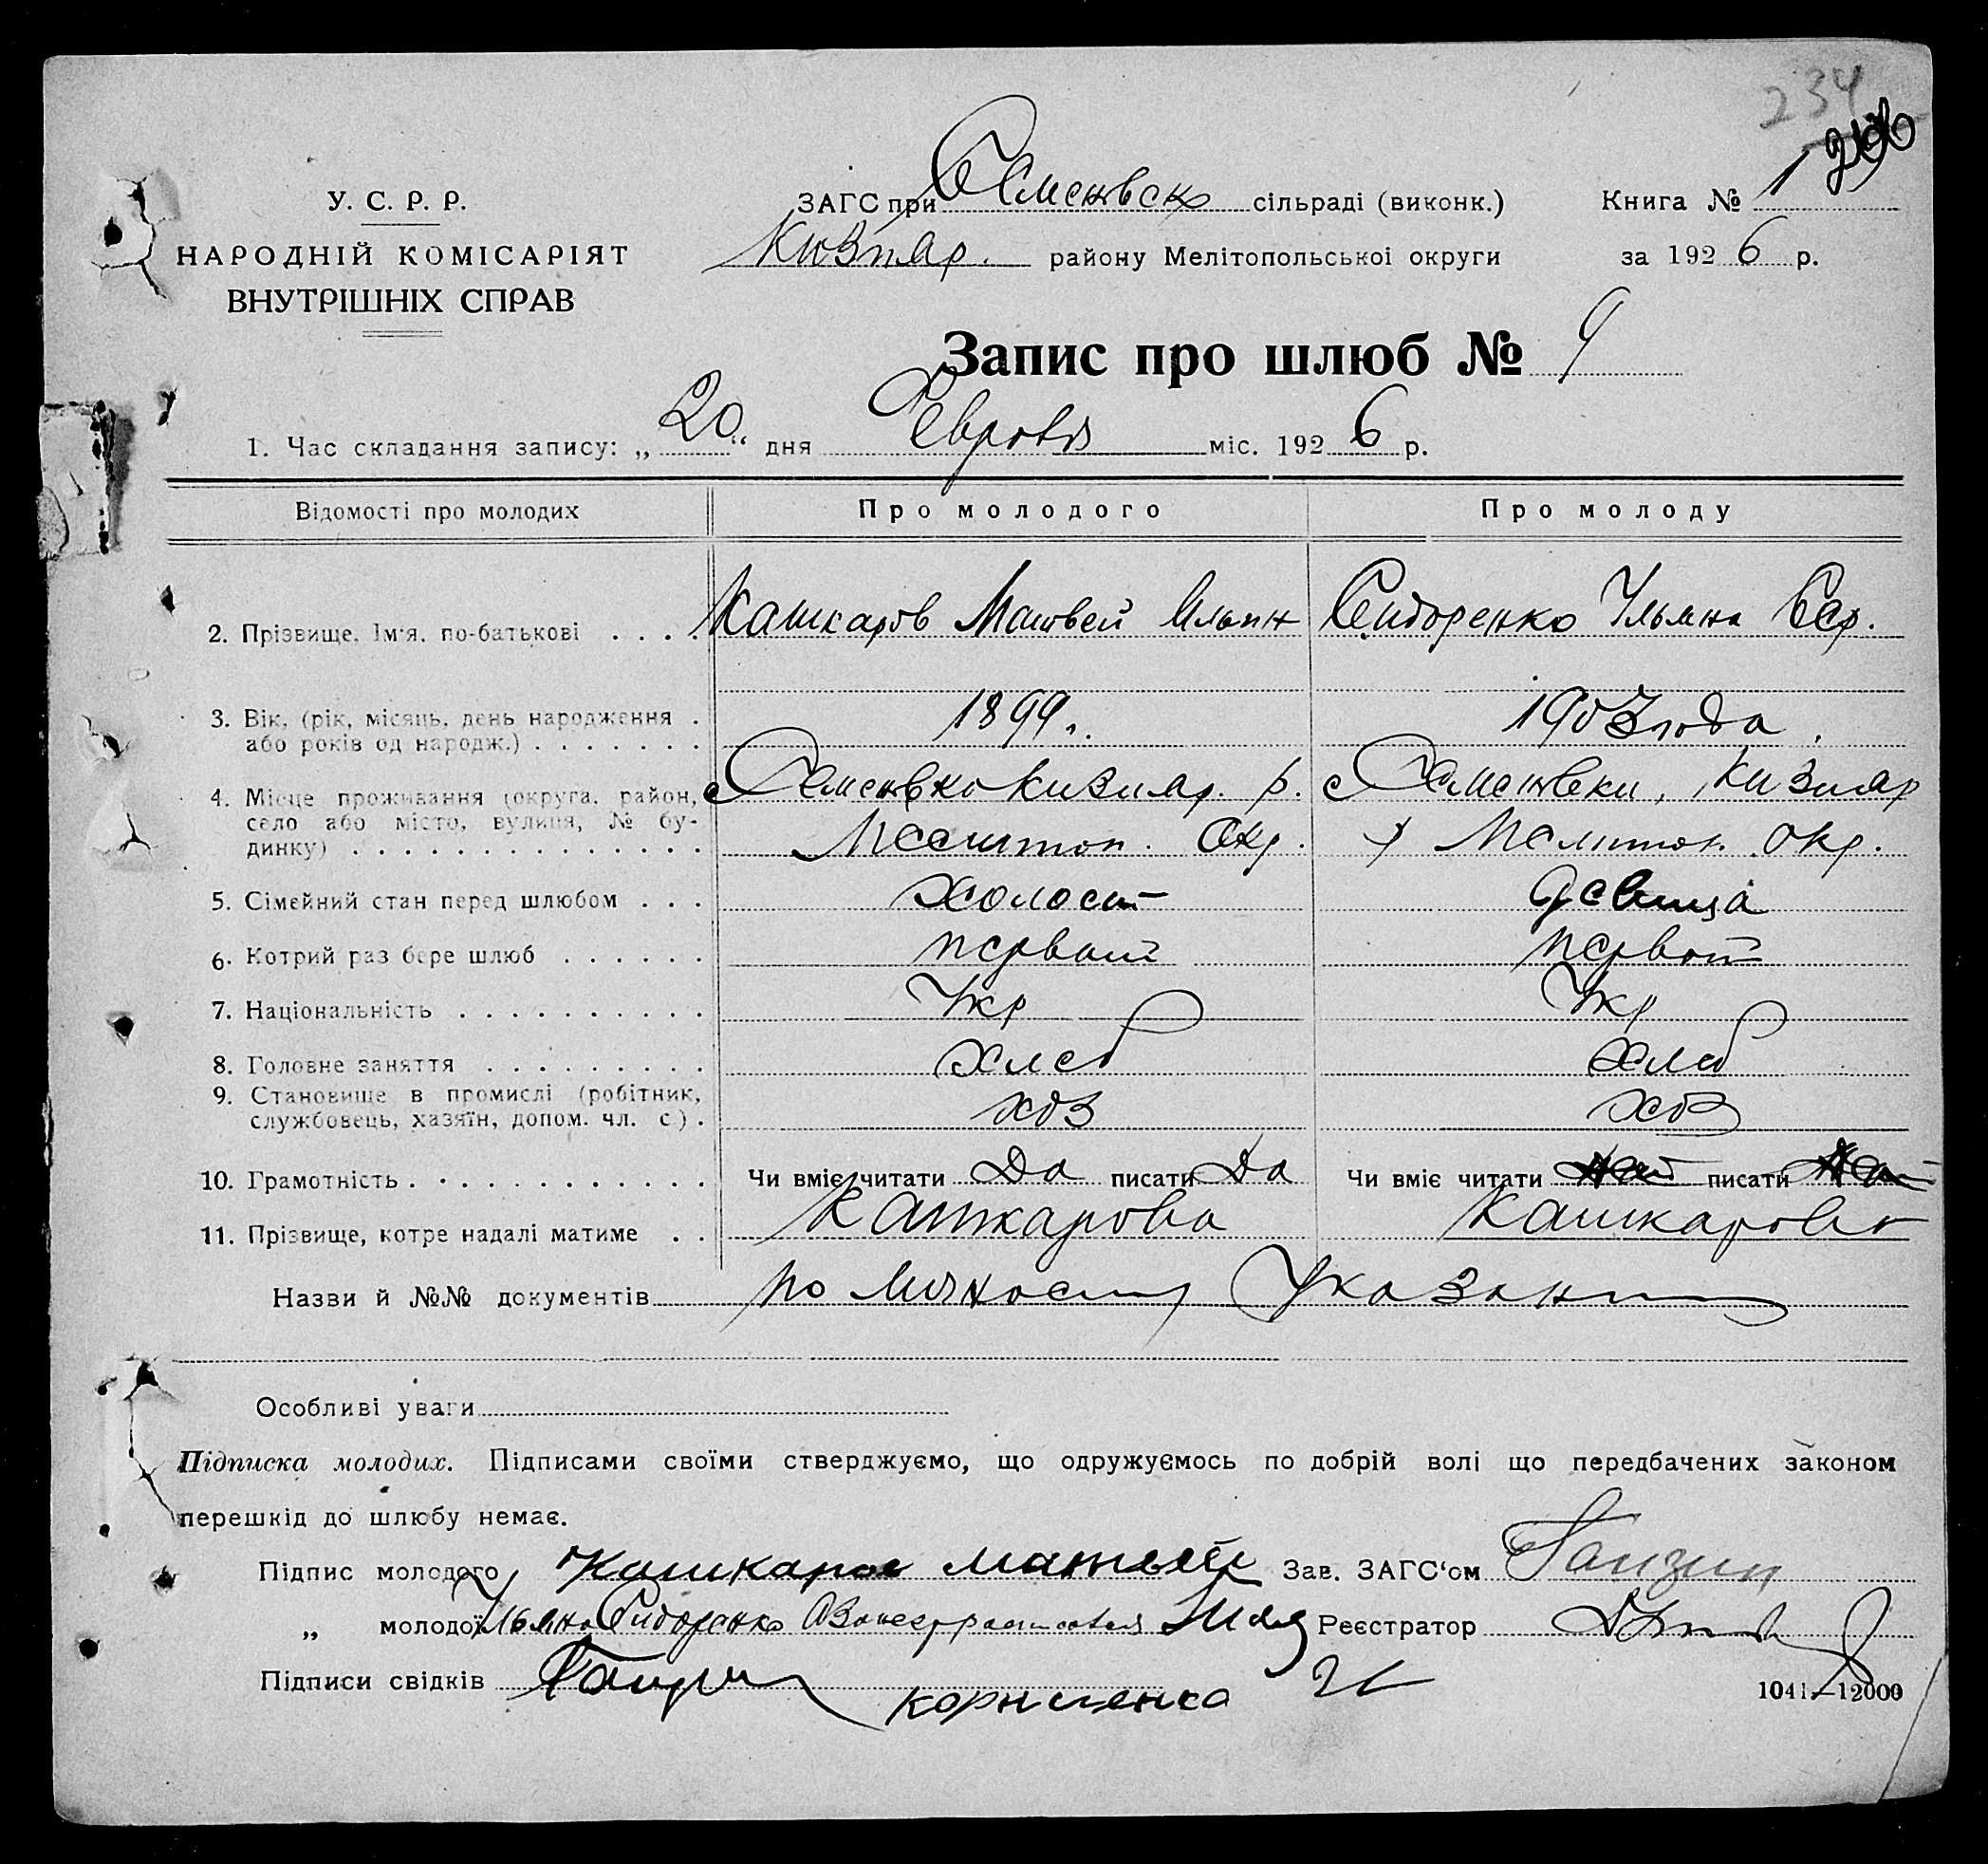 234
У. С. Р. Р.
НАРОДНІЙ КОМІСАРІЯТ
ВНУТРІШНІХ СПРАВ
ЗАГС при Семеновск сільраді (виконк.) Книга № 1
Кизияр. району Мелітопольської округи за 1926 р.
Запис про шлюб № 9
1. Час складання запису: „20“ дня Февраля міс. 1926 р.
Відомості про молодих Про молодого Про молоду
2. Прізвище. Ім'я. по-батькові Кашкаров Матвей Ильин Сидоренко Ульяна
3. Вік. (рік, місяць, день народження 1899 г. 1903 года
або років од народж.)
4. Місце проживання (округа. район, с Семеновка Кизияр. р. с Семеновки, Кизияр
село або місто, вулиця, № бу-
динку) Мелитоп. Окр. р Мелитоп. окр.
5. Сімейний стан перед шлюбом холост девица
6. Котрий раз бере шлюб первый первой
7. Національність Укр Укр
8. Головне заняття хлеб хлеб
9. Становище в промислі (робітник, хоз хоз
службовець, хазяїн, допом. чл. с.)
10. Грамотність Чи вміє читати Да писати Да Чи вміє читати писати
11. Прізвище, котре надалі матиме Кашкарова Кашкарова
Назви й №№ документів по личности
Особливі уваги
Підписка молодих. Підписами своїми стверджуємо, що одружуємось по добрій волі що передбачених законом
перешкід до шлюбу немає.
Підпис молодого Кашкаров Матвей Зав. ЗАГС'ом
„ молодої Ульяна Сидоренко Реєстратор
Підписи свідків
корниенко И
1041—12000